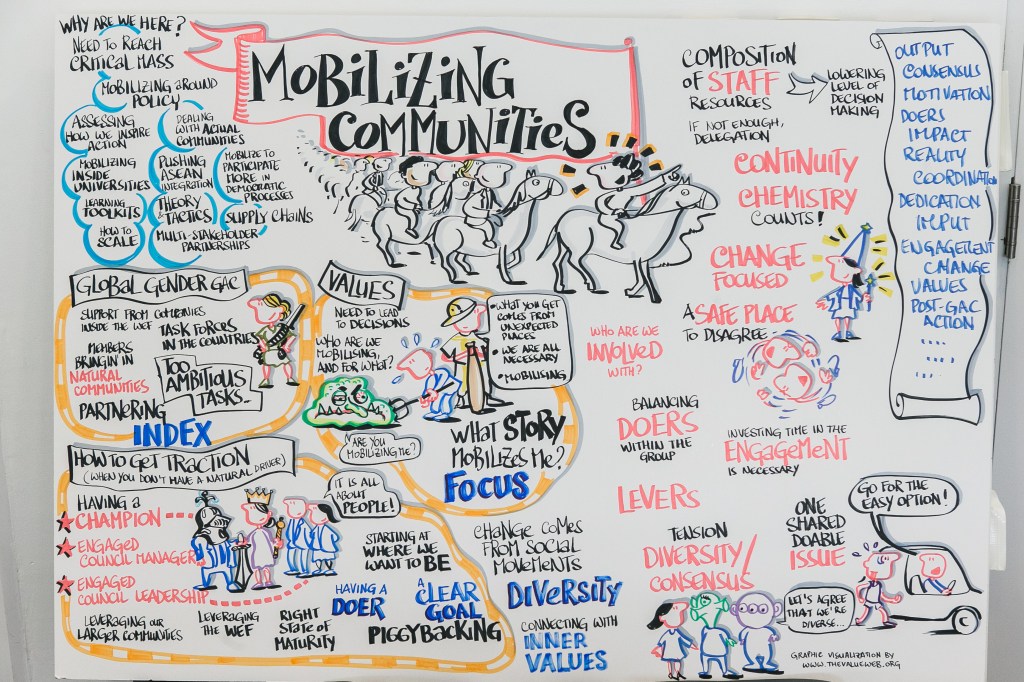 WHY ARE WE HERE?
NEED TO REACH
CRITICAL MASS
MOBILIZING AROUND
POLICY
ASSESSING
HOW WE INSPIRE
ACTION
DEALING
WITH ACTUAL
COMMUNITIES
MOBILIZING
INSIDE
UNIVERSITIES
PUSHING
ASEAN
INTEGRATION
MOBILIZE TO
PARTICIPATE
MORE IN
DEMOCRATIC
PROCESSES
LEARNING
TOOLKITS
THEORY
& TACTICS
SUPPLY CHAINS
HOW TO
SCALE
MULTI-STAKEHOLDER
PARTNERSHIPS
MOBILIZING
COMMUNITIES
COMPOSITION
OF STAFF
RESOURCES
LOWERING
LEVEL OF
DECISION
MAKING
IF NOT ENOUGH,
DELEGATION
CONTINUITY
CHEMISTRY
COUNTS!
CHANGE
FOCUSED
A SAFE PLACE
TO DISAGREE
OUTPUT
CONSENSUS
MOTIVATION
DOERS
IMPACT
REALITY
COORDINATION
DEDICATION
IMPUT
ENGAGEMENT
CHANGE
VALUES
POST-GAC
ACTION
....
....
GLOBAL GENDER GAC
SUPPORT FROM COMPANIES
INSIDE THE WEF
TASK FORCES
IN THE COUNTRIES
MEMBERS
BRINGIN IN
NATURAL
COMMUNITIES
TOO
AMBITIOUS
TASKS...
PARTNERING
INDEX
VALUES
NEED TO LEAD
TO DECISIONS
WHO ARE WE
MOBILISING,
AND FOR WHAT?
• WHAT YOU GET
COMES FROM
UNEXPECTED
PLACES
• WE ARE ALL
NECESSARY
• MOBILISING
ARE YOU
MOBILIZING ME?
WHAT STORY
MOBILIZES ME?
FOCUS
WHO ARE WE
INVOLVED
WITH?
BALANCING
DOERS
WITHIN THE
GROUP
INVESTING TIME IN THE
ENGAGEMENT
IS NECESSARY
HOW TO GET TRACTION
(WHEN YOU DON'T HAVE A NATURAL DRIVER)
HAVING A
CHAMPION
ENGAGED
COUNCIL MANAGER
ENGAGED
COUNCIL LEADERSHIP
IT IS ALL
ABOUT
PEOPLE!
LEVERAGING OUR
LARGER COMMUNITIES
LEVERAGING
THE WEF
RIGHT
STATE OF
MATURITY
STARTING AT
WHERE WE
WANT TO BE
HAVING A
DOER
A CLEAR
GOAL
PIGGYBACKING
CHANGE COMES
FROM SOCIAL
MOVEMENTS
DIVERSITY
CONNECTING WITH
INNER
VALUES
LEVERS
TENSION
DIVERSITY/
CONSENSUS
ONE
SHARED
DOABLE
ISSUE
GO FOR THE
EASY OPTION!
LET'S AGREE
THAT WE'RE
DIVERSE...
GRAPHIC VISUALIZATION BY
WWW.THEVALUEWEB.ORG